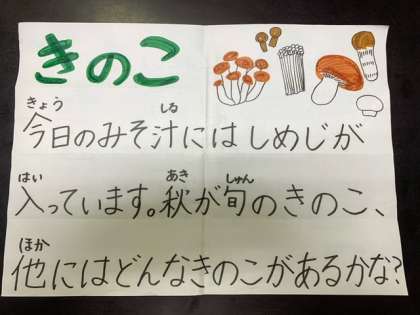 きのこ
きょう しる
今日のみそ汁にはしめじが
はい あき しゅん
入っています。秋が旬のきのこ、
ほか
他にはどんなきのこがあるかな?